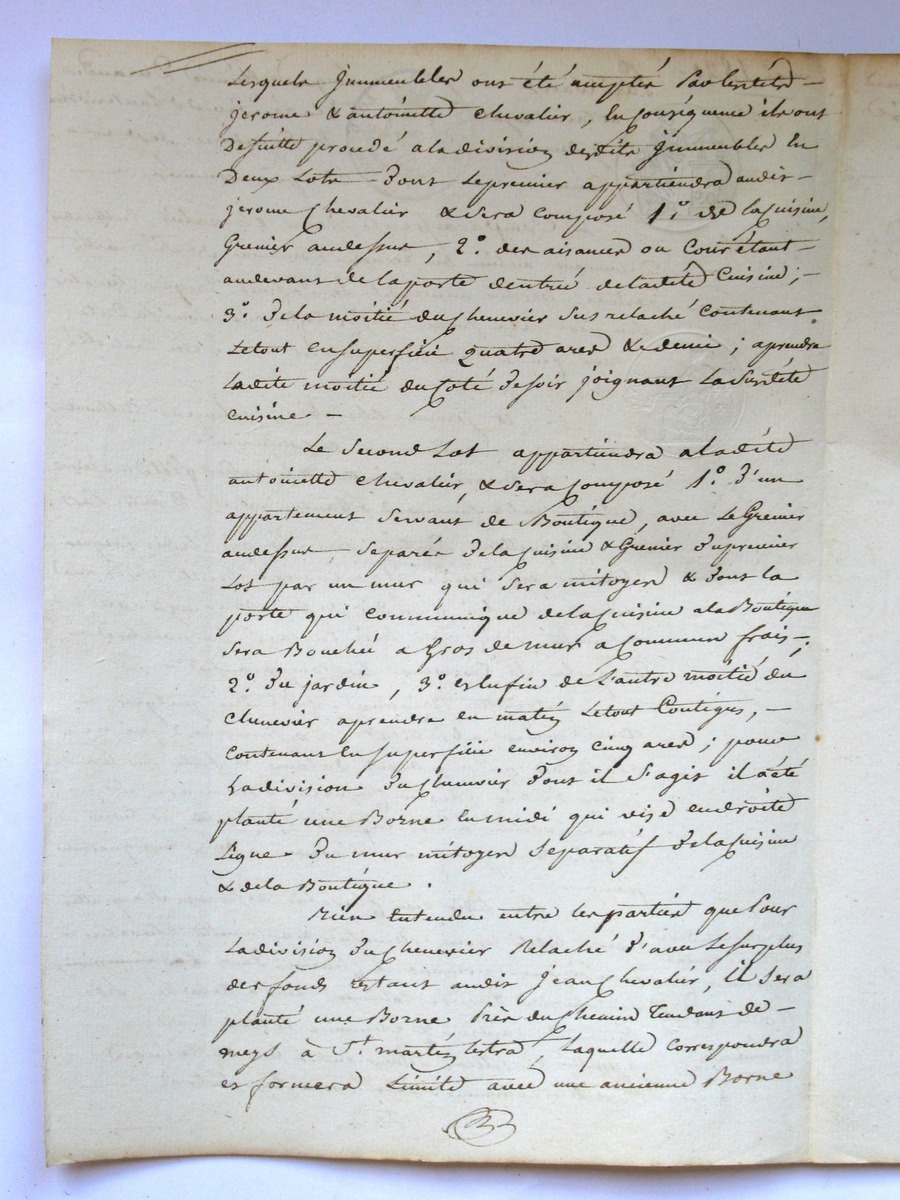 Lesquels Jmmeubles ont été acceptés Par lesdits -
jerome & antoinette chevalier, En conséquence ils ont
De suitte procedé a la division desdits Jmmeubles En
Deux Lots dont Le premier appartiendra audit -
jerome Chevalier & sera composé 1.° de la Cuisine,
Grenier audessus, 2.° des aisances ou Cour étant -
audevant de la porte d'entrée de ladite Cuisine ; -
3.° de la moitié du Chenevier sus relaché contenant
Le tout en superficie quatre ares & demi ; aprendre
Ladite moitié du Coté de soir joignant La susdite
cuisine -
Le second Lot appartiendra a ladite
antoinette chevalier, & sera Composé 1.° d'un
appartement servant de Boutique, avec Le Grenier
audessus, separés de la cuisine & Grenier du premier
Lot par un mur qui sera mitoyen & dont la
porte qui communique de la cuisine a la Boutique
sera Bouchée a Gros de mur a Commun frais - ;
2.° du jardin, 3.° est enfin de L'autre moitié du
chenevier aprendre en matin Le tout Contigus, -
contenant En superficie environ cinq ares ; pour
La division du Chenevier dont il s'agit il a été
planté une Borne En midi qui vise en droite
Ligne du mur mitoyen separatif de la cuisine
& de la Boutique .
Bien Entendu entre les parties que Pour
La division du Chenevier Relaché d'avec Le surplus
des fonds restant audit jean Chevalier, Il sera
planté une Borne Près du Chemin Tendant de -
meys à S.t martin lestra, Laquelle correspondra
et formera Limite avec une ancienne Borne